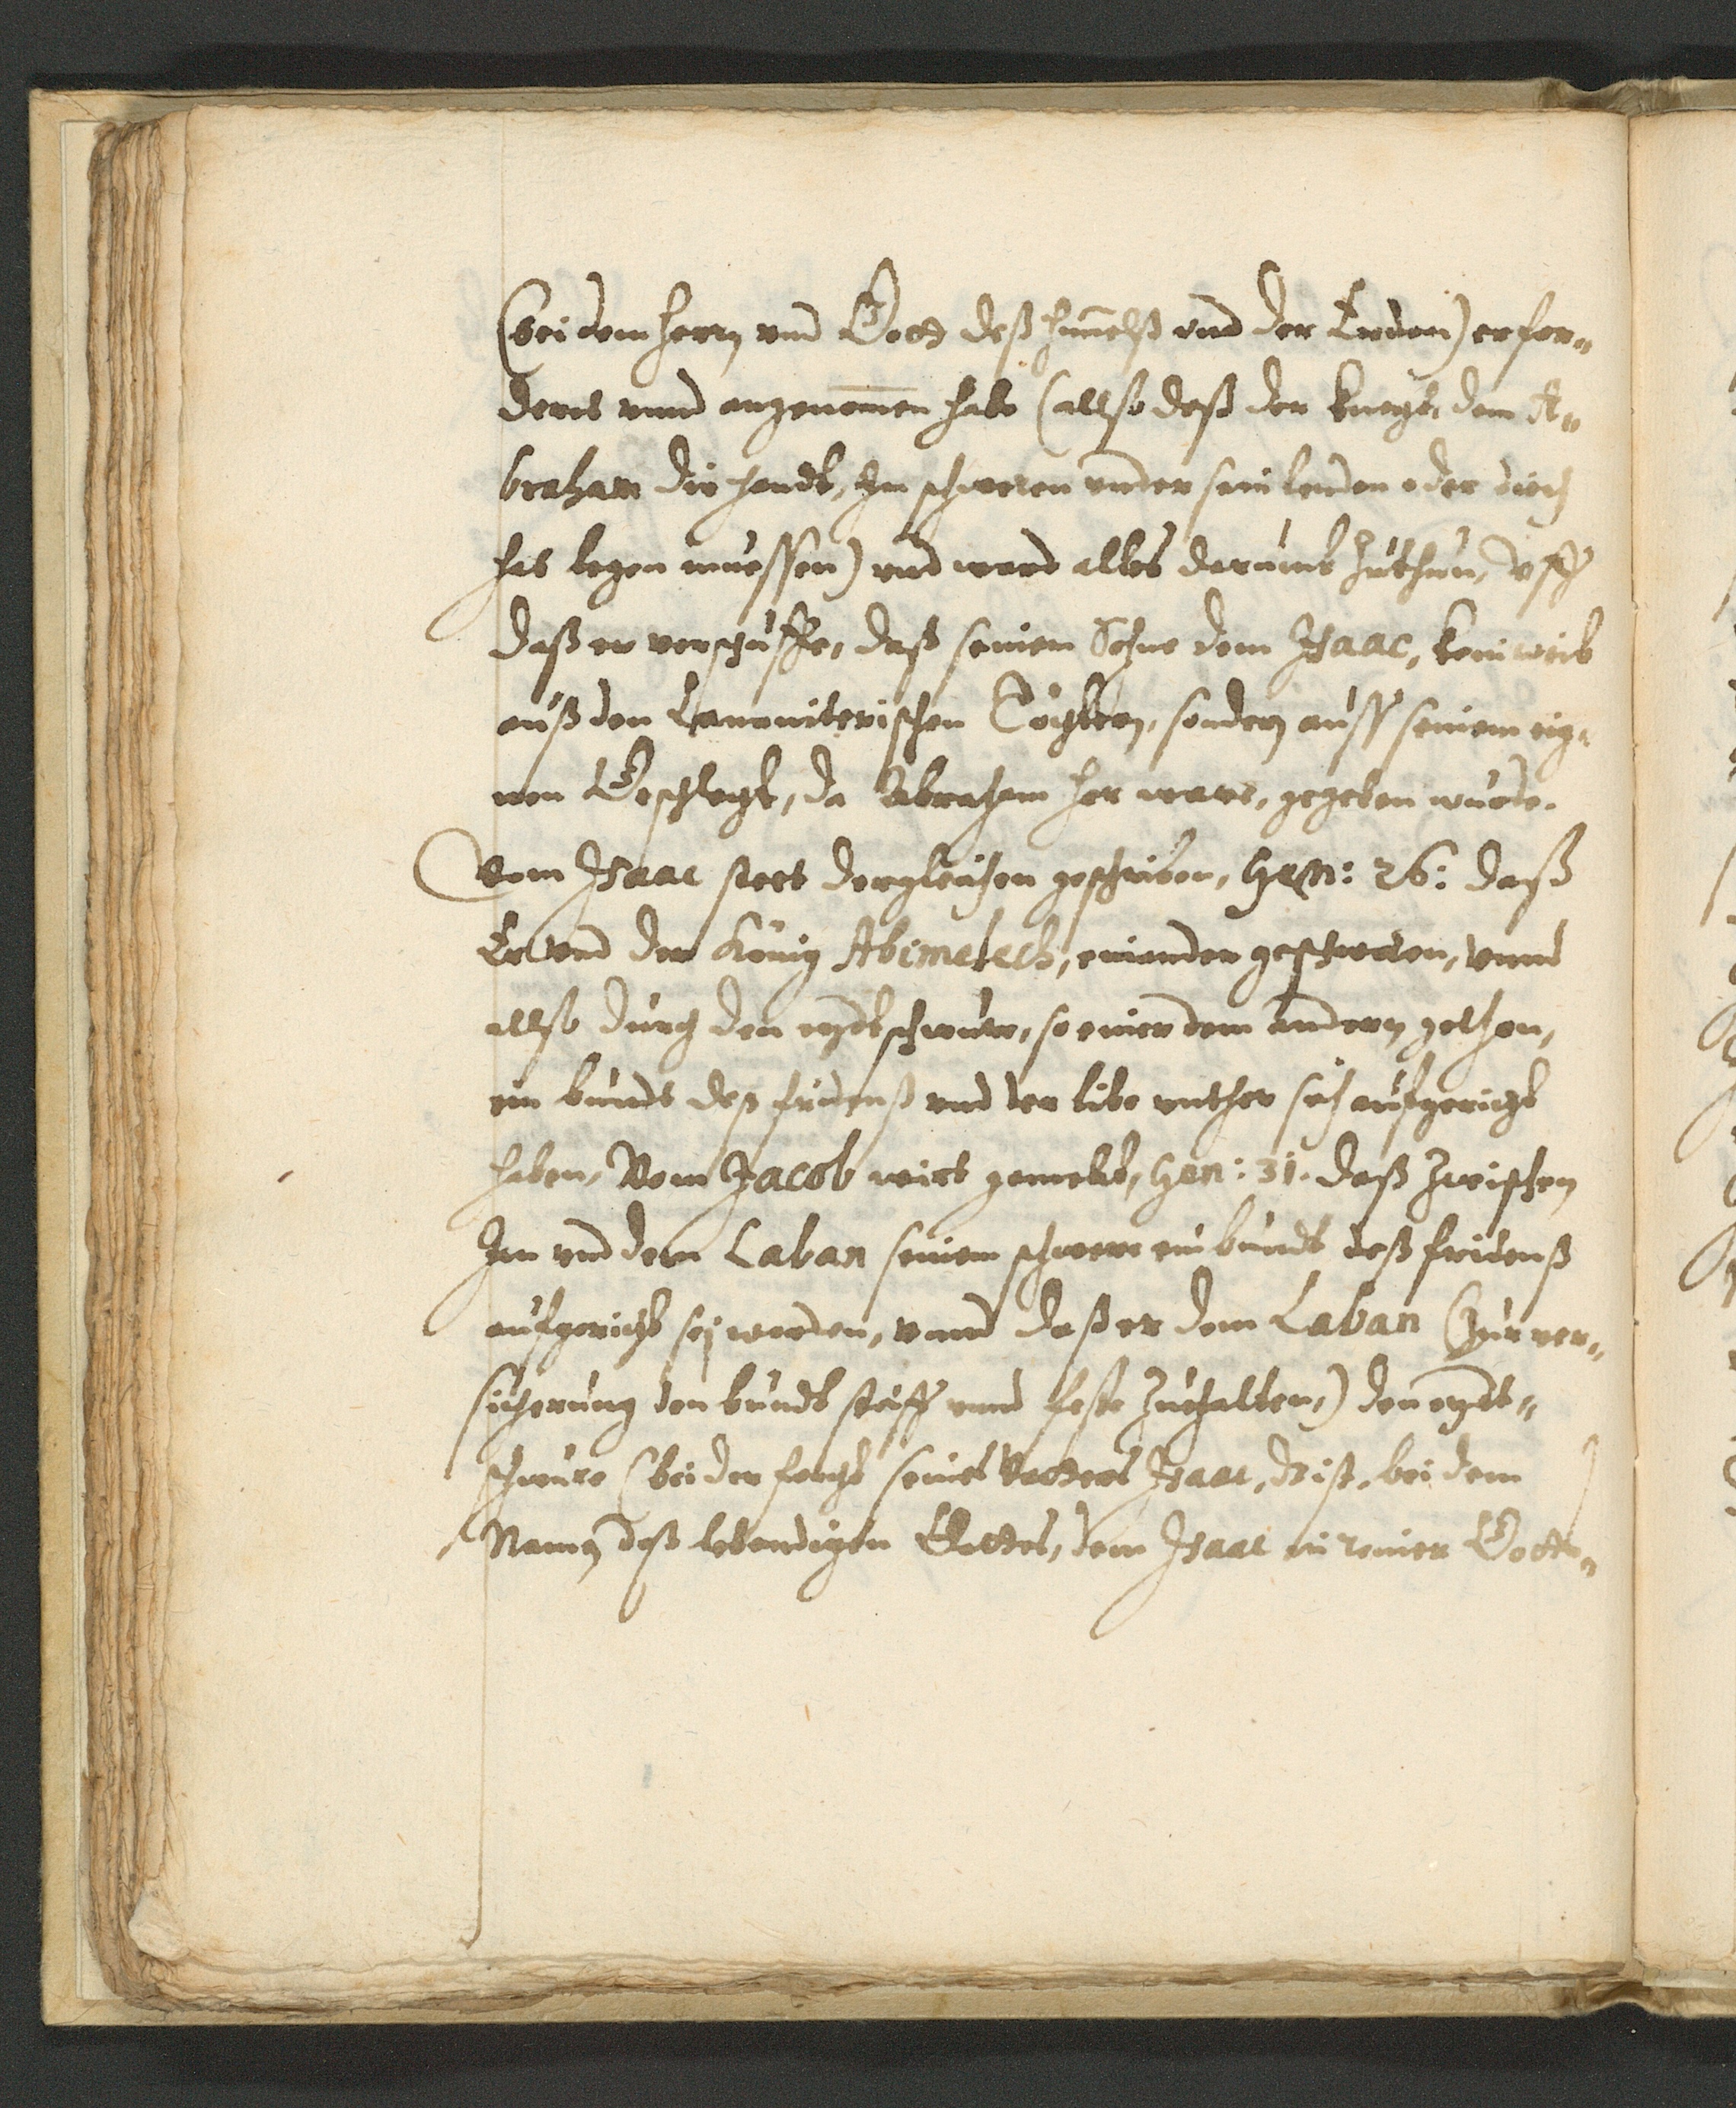 (bei dem herrn vnd Gott deß himelß vnd der Erden) erfor„
dert vnnd angenomen habe (allso daß der knecht, dem A„
braham die handt, Im schweren vnder sein lenden oder diech
hat legen muessen) vnd ward alles darumb zuthun, vff
daß er verschuffe, daß seinem Sohne dem Isaac, kein weib
auß den Cananiterischen Töchtern, sondern auff seinem eig„
nen Geschlecht, da Abraham her ware, gegeben wurde.
Vom Isaac steet dergleichen geschriben, Gen: 26: daß
Er vnd der König Abimelech, einander geschworen, vnnd
allso durch den eydtschwur, so einer dem andern gethon,
ein bundt deß fridenß vnd der libe vnther sich aufgericht
haben, Vom Jacob wirt gemelt, Gen: 31. daß zwischen
Im vnd dem Laban seinem schwere ein bundt deß fridenß
aufgericht sej worden, vnnd daß er dem Laban (zur ver„
sicherung den bundt steiff vnnd feste zuhalten,) den eydt„
schwure (bei der forcht seines Vatters Isaac, dz ist, bei dem
Namen deß lebendigen Gottes, dem Isaac in reiner Gotts„